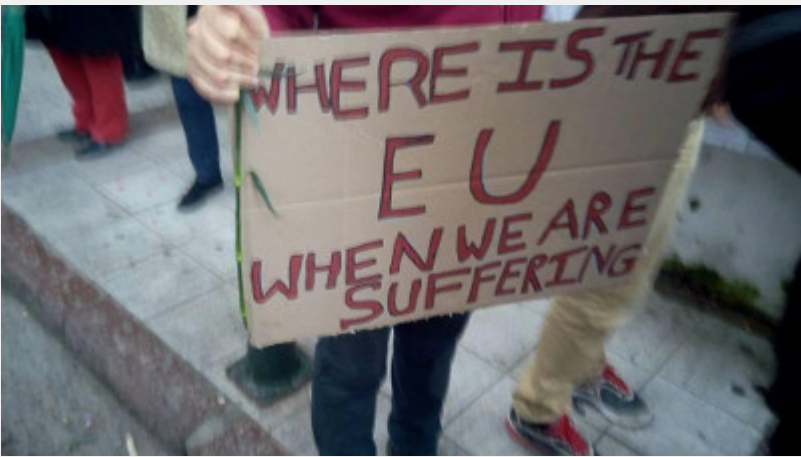 WHERE IS THE
EU
WHEN WE ARE
SUFFERING